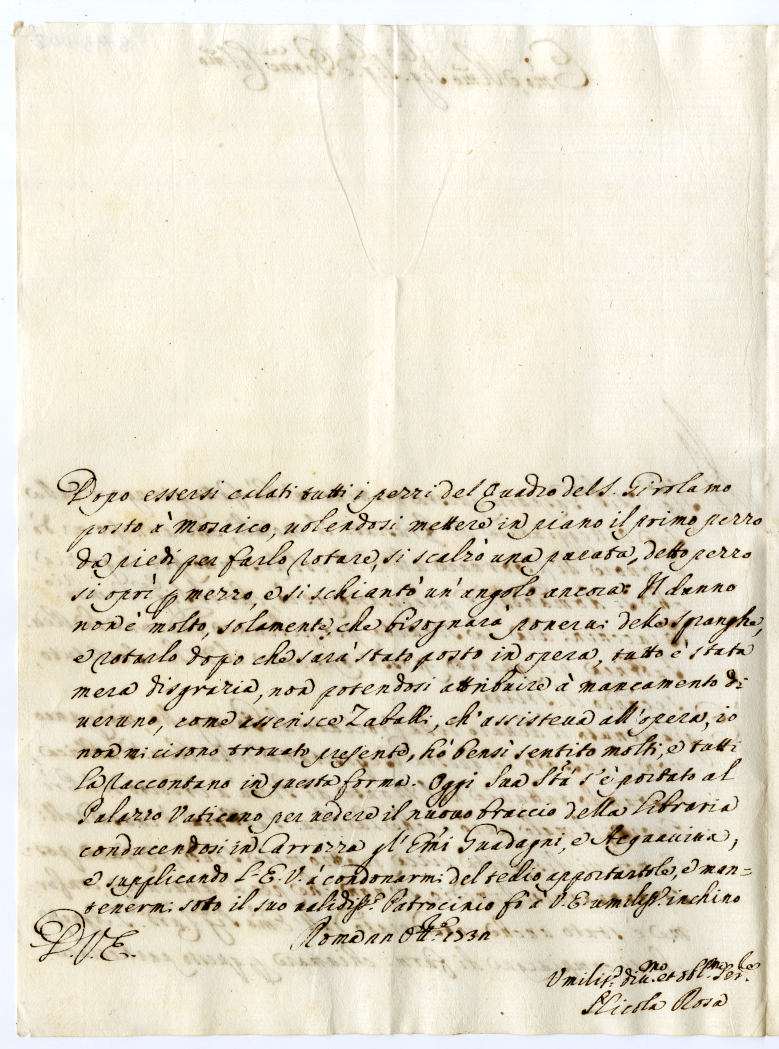 Dopo essersi calati tutti i pezzi del Quadro del S. Girolamo
posto à Mosaico, uolendosi mettere in piano il primo pezzo
da piedi per farlo rotare, si scalzò una parata, detto pezzo
si oprì p mezzo, e si schiantò un'angolo ancora. Il danno
non è molto, solamente, che bisognarà poneru: delle spranghe,
e rotarlo dopo che sarà stato posto in opera, tutto è stata
mera disgrazia, non potendosi attribuire à mancamento di
ueruno, come asserisce Zaballi, ch'assisteua all'opera, io
non mi ci sono trouato presente, hò bensì sentito molti, e tutti
la raccontano in questa forma. Oggi Sua Stà s'è portato al
Palazzo Vaticano per uedere il nuouo braccio della Libraria
conducendosi in Carrozza gl'Emi Guadagni, e Acquauiua,
e supplicando L'E.V. à condonarmi del tedio apportatole, e man=
tenermi sotto il suo ualidissº. Patrocinio fò à V.E. umilissº. inchino
D.V.E. Roma 8bre 1732
Umilisº. diuº. et oblmo Serre
Nicola Rosa